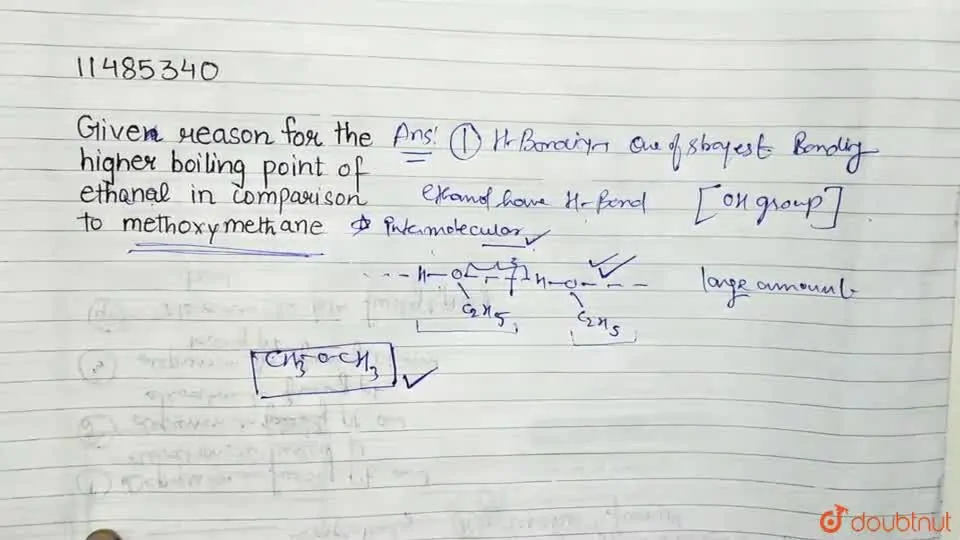 11485340
Given reason for the
higher boiling point of
ethanal in comparison
to methoxymethane
Ans: ① H-Bonding → One of strongest Bonding
ethanol have H-Bond [OH group]
Intermolecular
--- H-O --- H-O ---
C₂H₅ C₂H₅
large amount
CH₃-O-CH₃
doubtnut